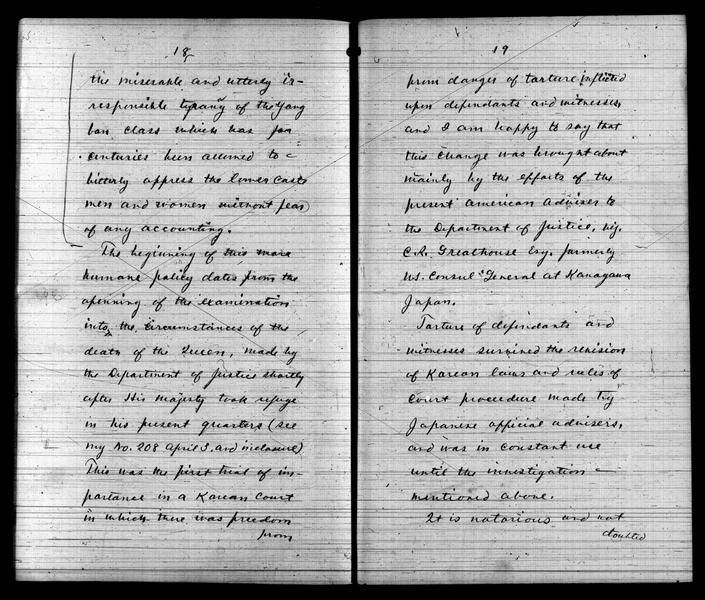 18
the miserable and utterly ir-
responsible tyrany of the Yang
ban class which has for
centuries been allowed to -
bitterly oppress the lower caste
men and women without fear
of any accounting.
The beginning of this more
humane policy dates from the
openning of the examination
into the circumstances of the
death of the Queen, made by
the Department of Justice shortly
after His Majesty took refuge
in his present quarters (see
my No. 208 April 3, and inclosure)
This was the first trial of im-
portance in a Korean Court
in which there was freedom
from
19
from danger of torture inflicted
upon defendants and witnesses
and I am happy to say that
this change was brought about
mainly by the efforts of the
present American adviser to
the Department of Justice, viz.
C.R. Greathouse Esq. formerly
U.S. Consul General at Kanagawa
Japan.
Torture of defendants and
witnesses survived the revision
of Korean laws and rules of
Court procedure made by
Japanese official advisers,
and was in constant use
until the investigation -
mentioned above.
It is notorious and not
doubted